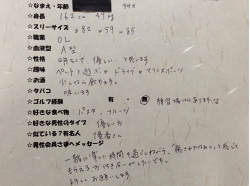 ☆なまえ・年齢
☆身長 162cm 49kg
☆スリーサイズ 82 59 85
☆職業 OL
☆血液型 A型
☆性格 明るくて 優しい と思います
☆趣味 ペットと遊ぶ ドライブ
☆お酒 少しなら飲めます。
☆タバコ 吸います
☆ゴルフ経験 有・無 練習場なら
☆好きな食べ物 パスタ フルーツ
☆好きな男性のタイプ 優しい方
☆似ている？有名人 優香さん
☆男性会員さまへメッセージ
一緒に楽しい時間を過ごしながら、癒されたなぁと感じて
もらえるお付き合いがしたいです。
よろしくお願いします